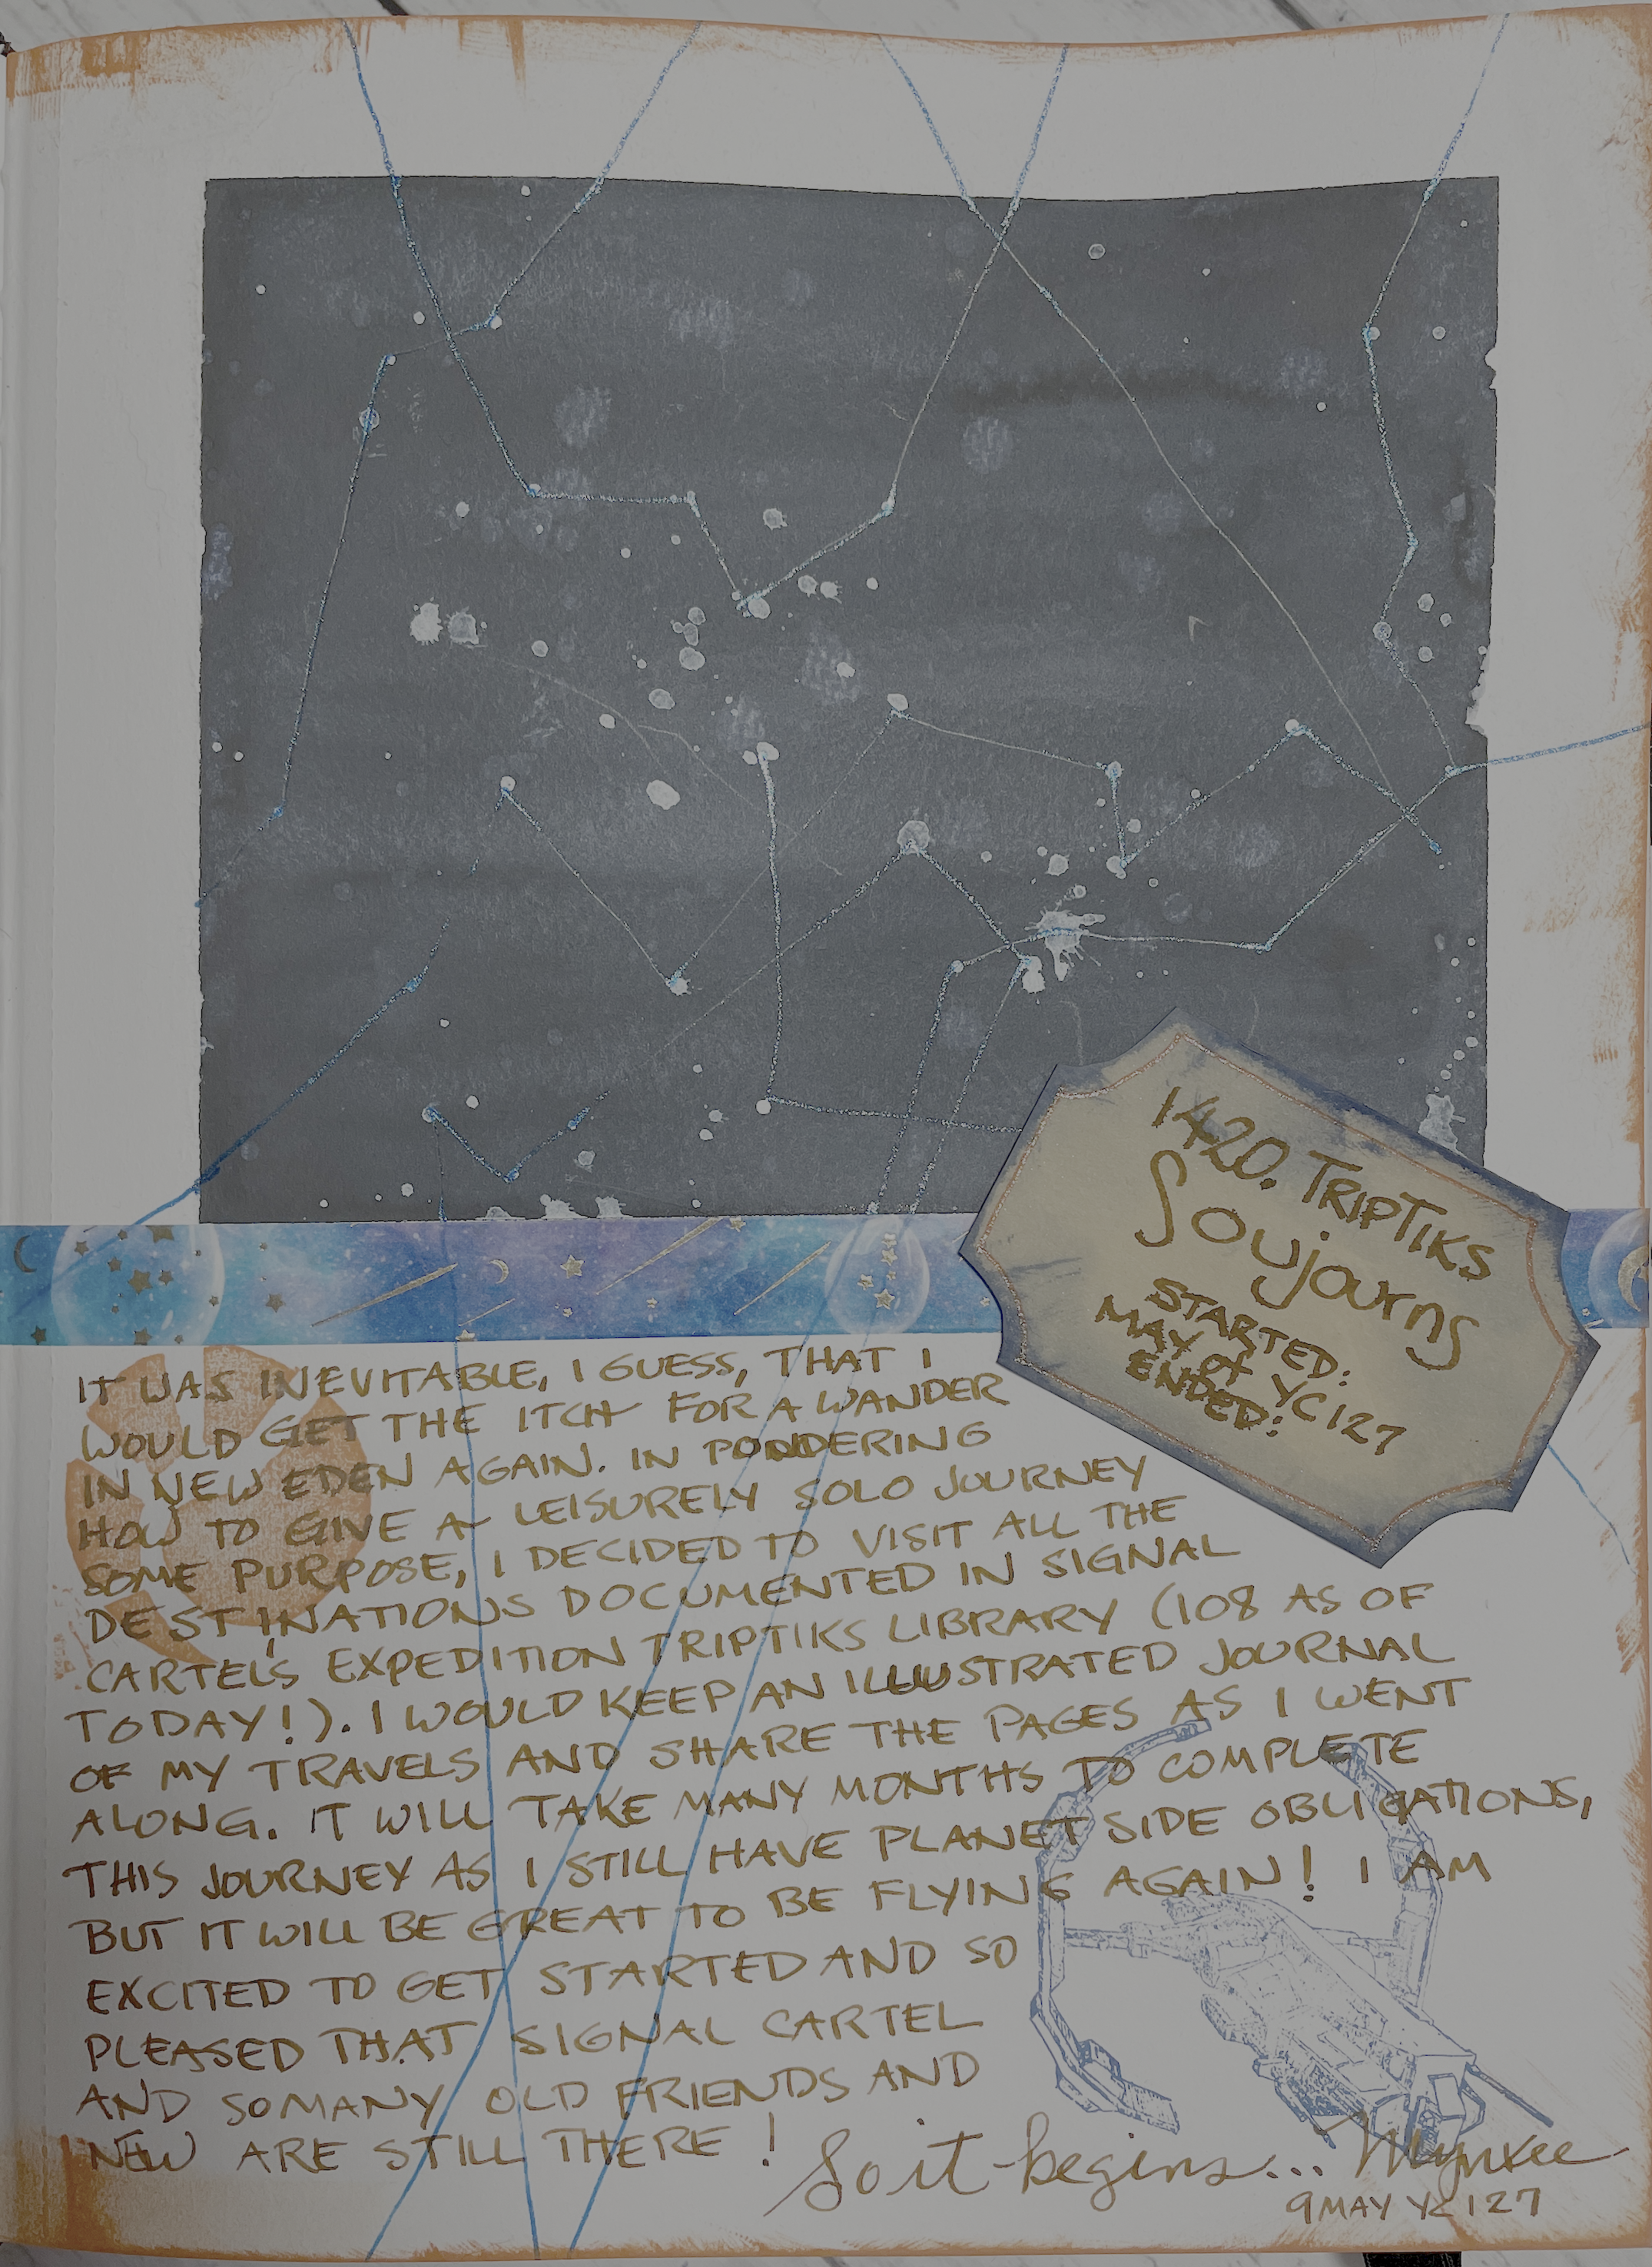 1420. TRIPTIKS
Soujourns
STARTED:
MAY of YC127
ENDED:
IT WAS INEVITABLE, I GUESS, THAT I
WOULD GET THE ITCH FOR A WANDER
IN NEW EDEN AGAIN. IN PONDERING
HOW TO GIVE A LEISURELY SOLO JOURNEY
SOME PURPOSE, I DECIDED TO VISIT ALL THE
DESTINATIONS DOCUMENTED IN SIGNAL
CARTEL'S EXPEDITION TRIPTIKS LIBRARY (108 AS OF
TODAY!). I WOULD KEEP AN ILLUSTRATED JOURNAL
OF MY TRAVELS AND SHARE THE PAGES AS I WENT
ALONG. IT WILL TAKE MANY MONTHS TO COMPLETE
THIS JOURNEY AS I STILL HAVE PLANET SIDE OBLIGATIONS,
BUT IT WILL BE GREAT TO BE FLYING AGAIN! I AM
EXCITED TO GET STARTED AND SO
PLEASED THAT SIGNAL CARTEL
AND SO MANY OLD FRIENDS AND
NEW ARE STILL THERE!
So it begins... Mynxee
9 MAY YC127